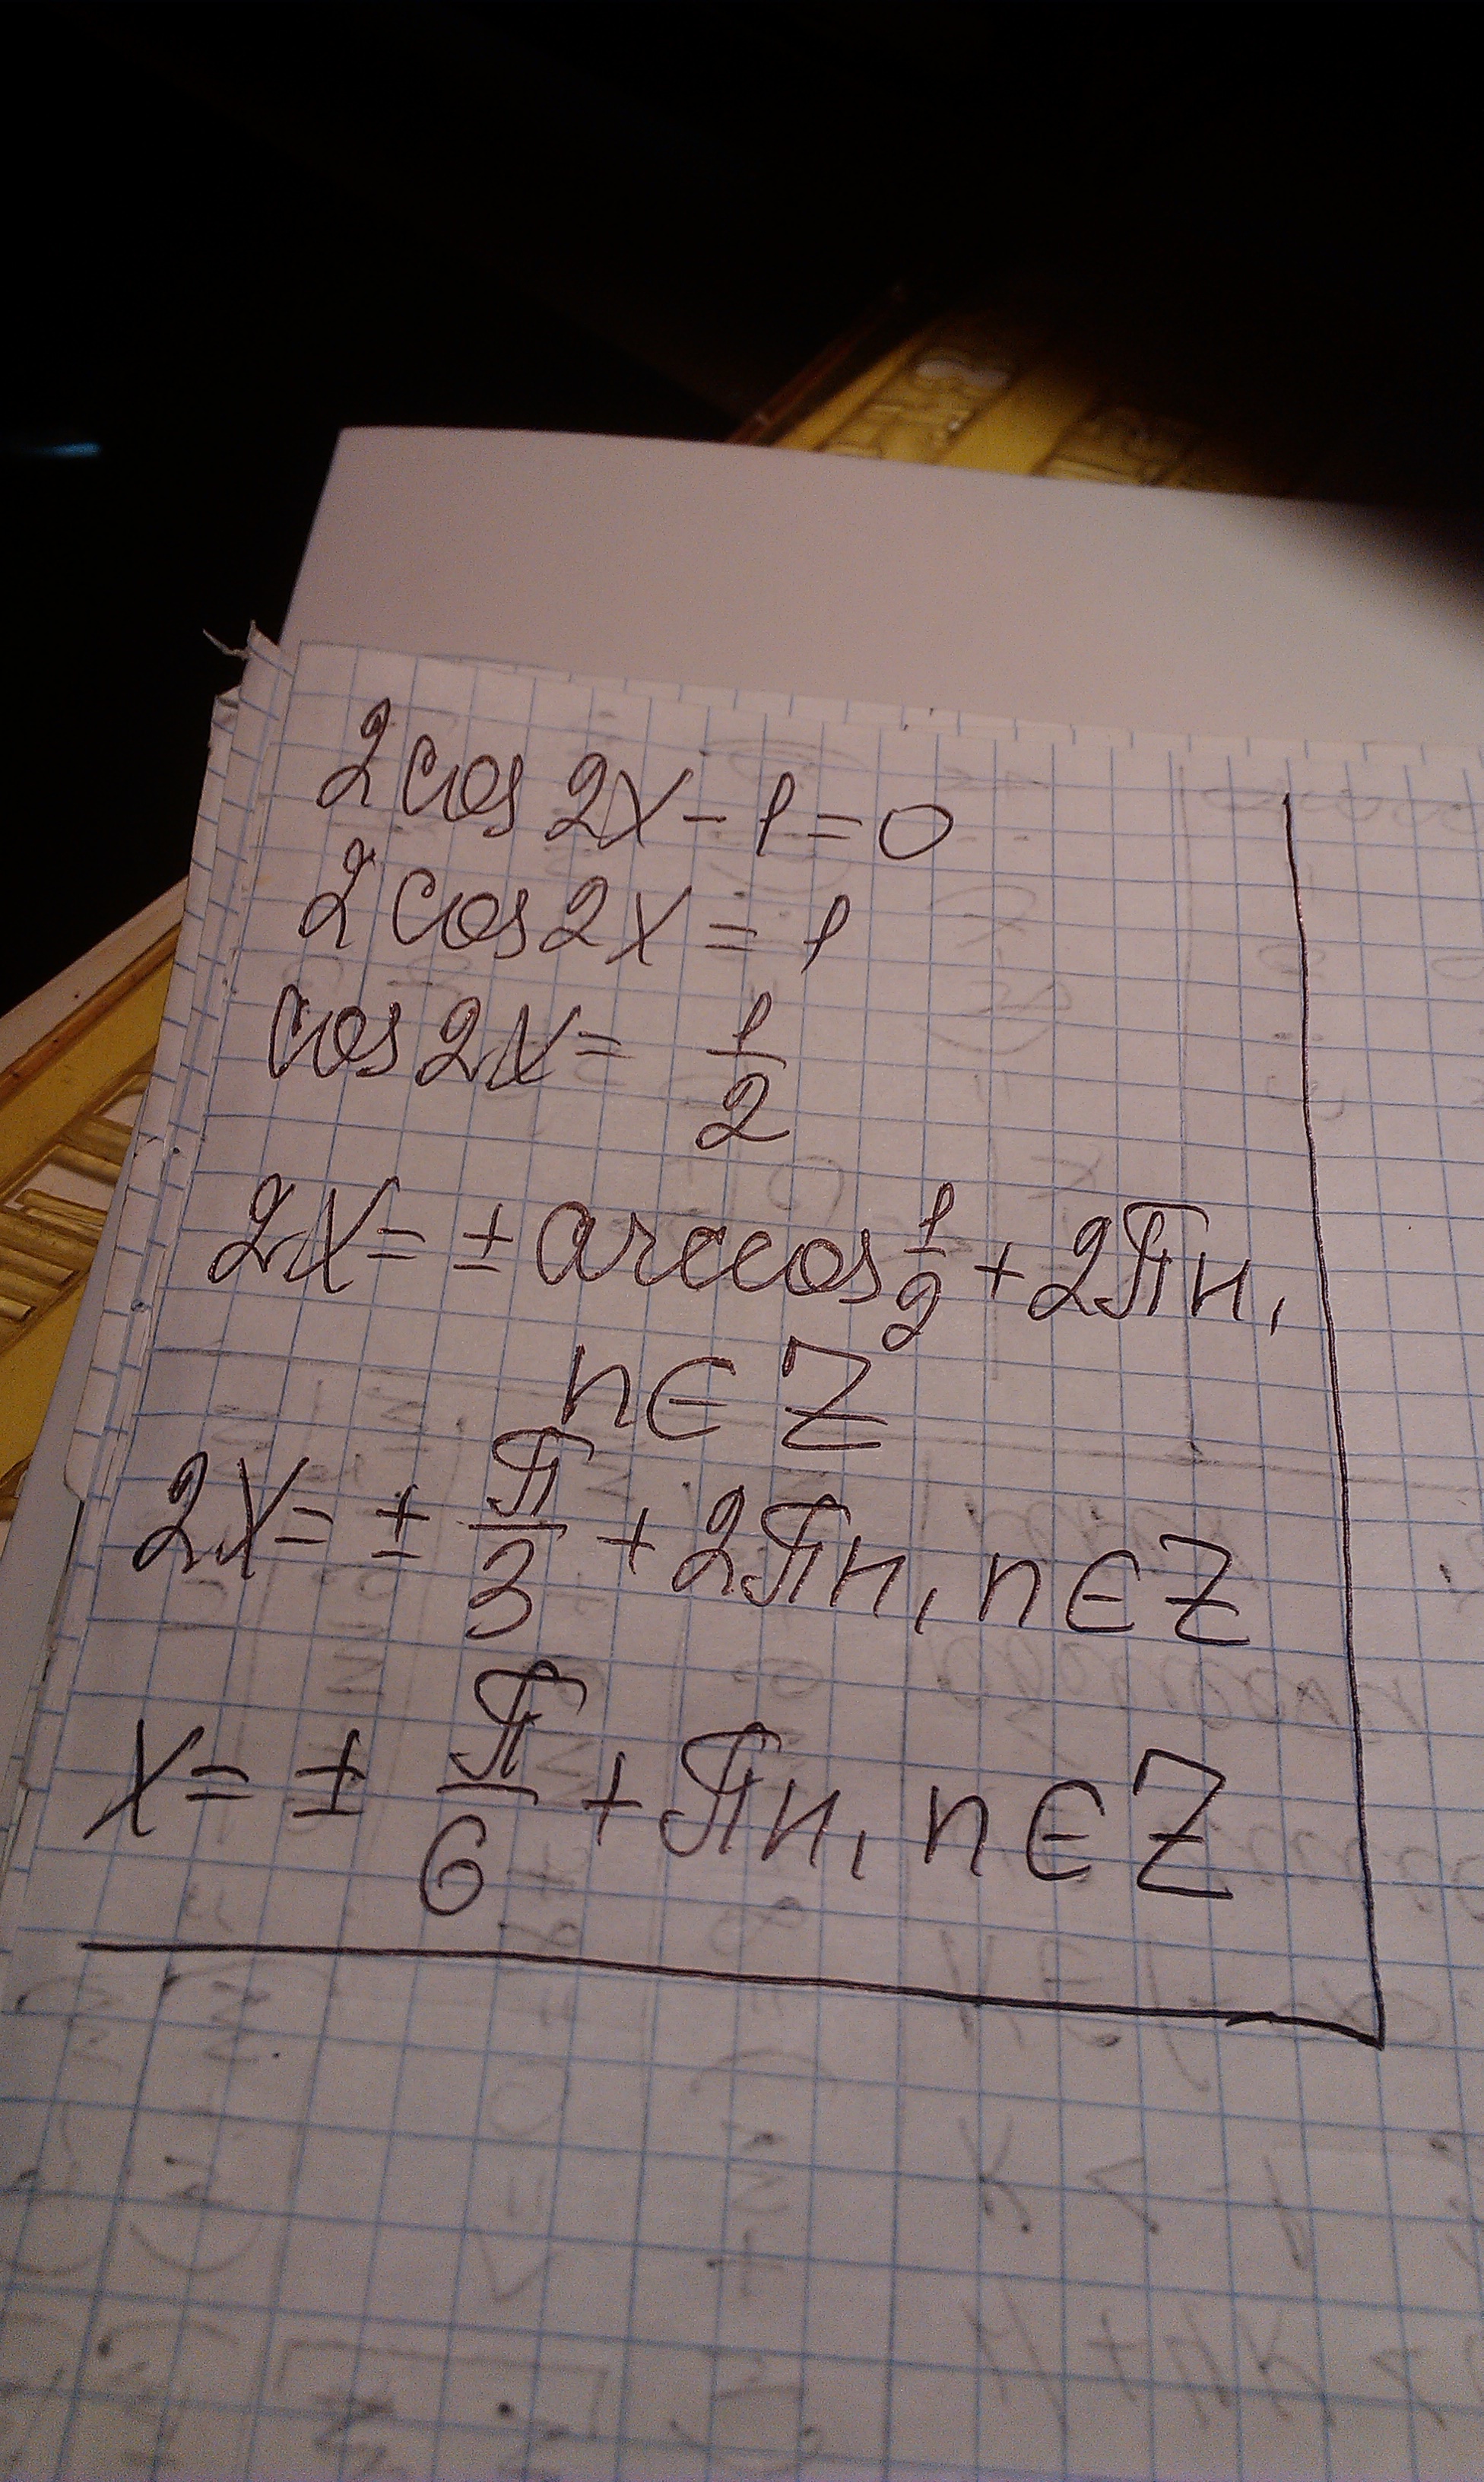 2cos2x-1=0
2cos2x=1
cos2x=1/2
2x=±arccos1/2+2πn,
n∈Z
2x=±π/3+2πn, n∈Z
x=±π/6+πn, n∈Z